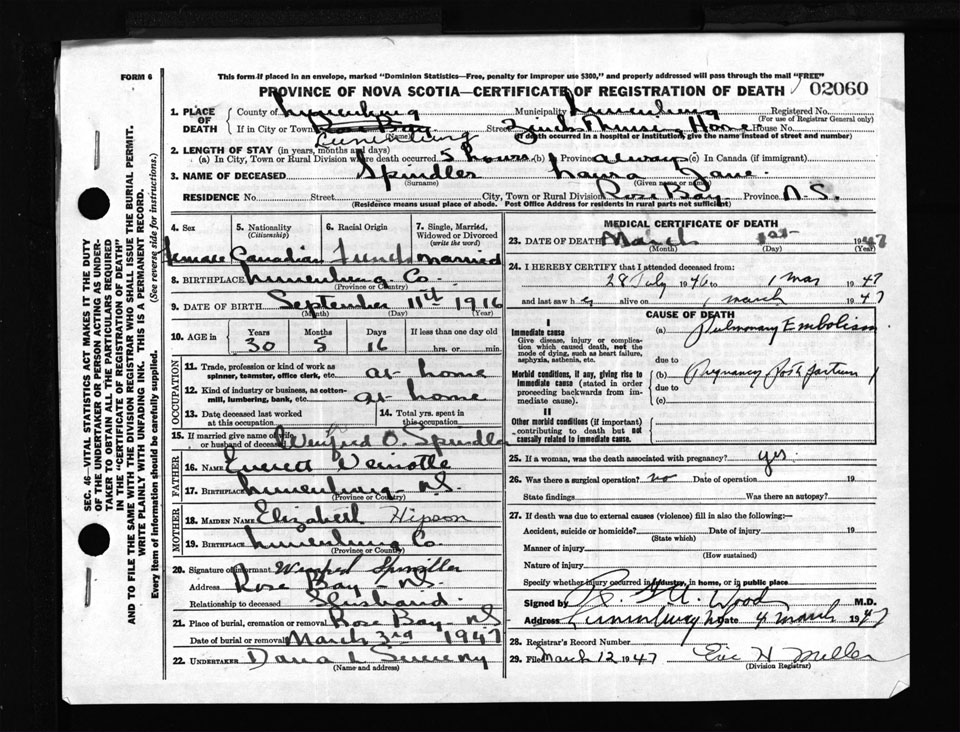 FORM 6
This form if placed in an envelope, marked "Dominion Statistics—Free, penalty for improper use $300," and properly addressed will pass through the mail "FREE"
PROVINCE OF NOVA SCOTIA—CERTIFICATE OF REGISTRATION OF DEATH 02060
1. PLACE OF DEATH County of Lunenburg Municipality Lunenburg Registered No.
(For use of Registrar General only)
If in City or Town Rose Bay Lunenburg Street Zincks Nursing Home House No.
(Name) (If death occurred in a hospital or institution give the name instead of street and number)
2. LENGTH OF STAY (in years, months and days)
(a) In City, Town or Rural Division where death occurred 5 hours (b) Province always (c) In Canada (if immigrant)
3. NAME OF DECEASED Spindler Laura Jane
(Surname) (Given name or names)
RESIDENCE No. Street City, Town or Rural Division Rose Bay Province N.S.
(Residence means usual place of abode. Post Office Address for residents in rural parts not sufficient)
SEC. 46—VITAL STATISTICS ACT MAKES IT THE DUTY
OF THE UNDERTAKER OR PERSON ACTING AS UNDER-
TAKER TO OBTAIN ALL THE PARTICULARS REQUIRED
IN THE "CERTIFICATE OF REGISTRATION OF DEATH"
AND TO FILE THE SAME WITH THE DIVISION REGISTRAR WHO SHALL ISSUE THE BURIAL PERMIT.
WRITE PLAINLY WITH UNFADING INK. THIS IS A PERMANENT RECORD.
Every item of Information should be carefully supplied. (See reverse side for instructions.)
4. Sex 5. Nationality (Citizenship) 6. Racial Origin 7. Single, Married, Widowed or Divorced (write the word)
Female Canadian French Married
8. BIRTHPLACE Lunenburg Co.
(Province or Country)
9. DATE OF BIRTH September 11th 1916
(Month) (Day) (Year)
10. AGE in Years Months Days If less than one day old
30 5 16 hrs. or min.
OCCUPATION
11. Trade, profession or kind of work as spinner, teamster, office clerk, etc. at home
12. Kind of industry or business, as cotton-mill, lumbering, bank, etc. at home
13. Date deceased last worked at this occupation 14. Total yrs. spent in this occupation
15. If married give name of wife or husband of deceased Winfred O. Spindler
FATHER
16. NAME Everett
17. BIRTHPLACE Lunenburg N.S.
(Province or Country)
MOTHER
18. MAIDEN NAME Elizabeth Hipson
19. BIRTHPLACE Lunenburg Co.
(Province or Country)
20. Signature of informant Winfred Spindler
Address Rose Bay - N.S.
Relationship to deceased Husband.
21. Place of burial, cremation or removal Rose Bay N.S
Date of burial or removal March 3rd 1947
22. UNDERTAKER Dana L Sweeny
(Name and address)
MEDICAL CERTIFICATE OF DEATH
23. DATE OF DEATH March 1st 1947
(Month) (Day)
24. I HEREBY CERTIFY that I attended deceased from:
28 July 1946 to 1 Mar 1947
and last saw her alive on 1 March 1947
CAUSE OF DEATH
I
Immediate cause (a) Pulmonary Embolism
Give disease, injury or complication which caused death, not the mode of dying, such as heart failure, asphyxia, asthenia, etc.
due to
Morbid conditions, if any, giving rise to immediate cause (stated in order proceeding backwards from immediate cause). (b) Pregnancy Post partum
due to
(c)
II
Other morbid conditions (if important) contributing to death but not causally related to immediate cause.
25. If a woman, was the death associated with pregnancy? yes.
26. Was there a surgical operation? no Date of operation 19
State findings Was there an autopsy?
27. If death was due to external causes (violence) fill in also the following:
Accident, suicide or homicide? Date of injury 19
(State which)
Manner of injury
(How sustained)
Nature of injury
Specify whether injury occurred in industry, in home, or in public place
Signed by Wood M.D.
Address Lunenburg NS Date 4 March 1947
28. Registrar's Record Number
29. Filed March 12 1947 Eric H Miller
(Division Registrar)